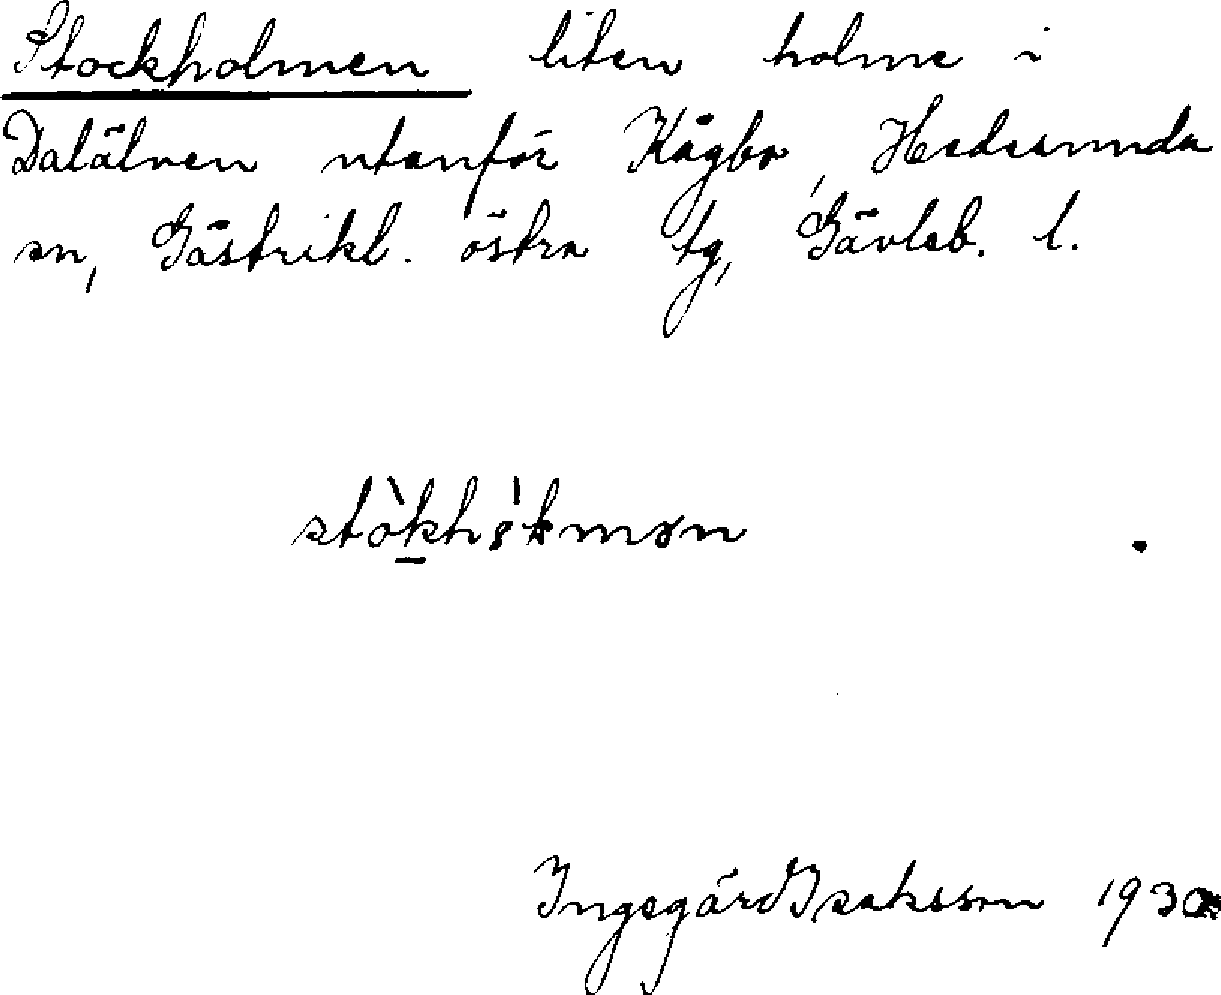 Stockholmen liten holme i
Dalälven utanför Kågbo, Hedesunda
sn, Gästrikl. östra tg, Gävleb. l.
Ingegärd Isaksson 1930